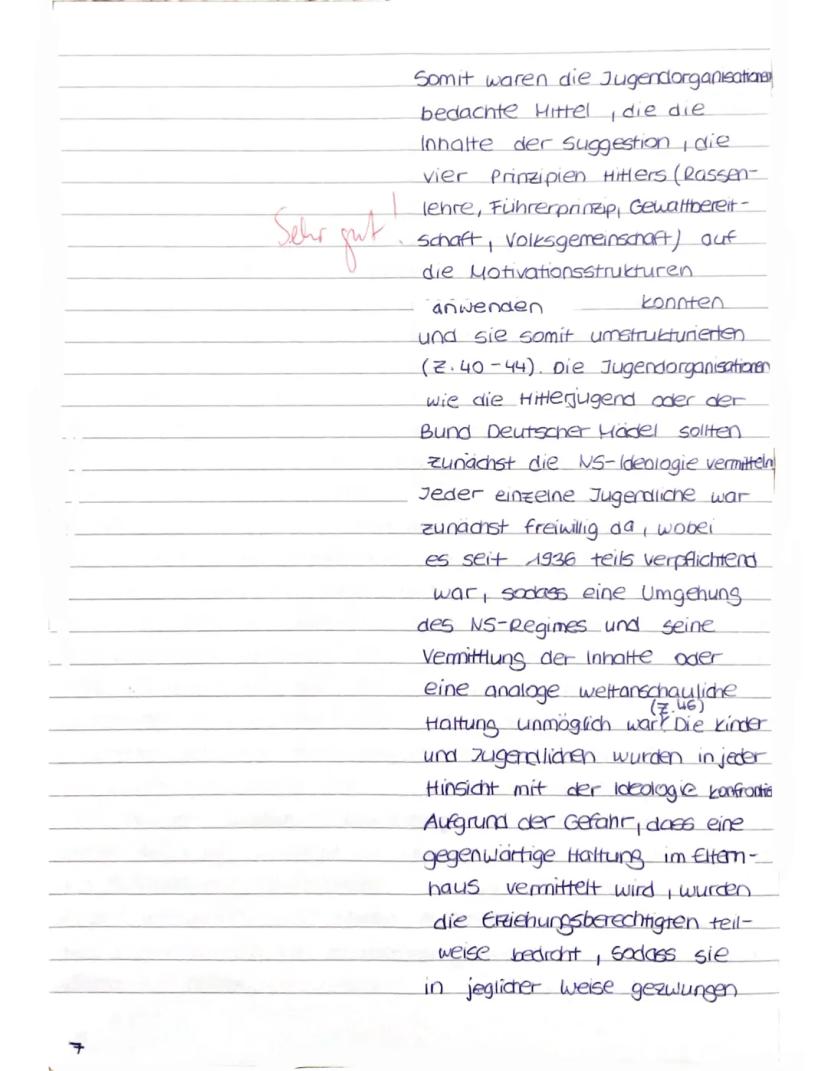 Somit waren die Jugendorganisationen
bedachte Mittel, die die
Inhalte der Suggestion, die
vier Prinzipien Hitlers (Rassen-
lehre, Führerprinzip, Gewaltbereit-
Sehr gut!
schaft, Volksgemeinschaft) auf
die Motivationsstrukturen
anwenden konnten
und sie somit umstrukturierten
(Z. 40-44). Die Jugendorganisationen
wie die Hitlerjugend oder der
Bund Deutscher Mädel sollten
zunächst die NS-Ideologie vermitteln
Jeder einzelne Jugendliche war
zunächst freiwillig da, wobei
es seit 1936 teils verpflichtend
war, sodass eine Umgehung
des NS-Regimes und seine
Vermittlung der Inhalte oder
eine analoge weltanschauliche
(Z.46)
Haltung unmöglich war. Die Kinder
und Jugendlichen wurden in jeder
Hinsicht mit der Ideologie konfrontie
Aufgrund der Gefahr, dass eine
gegenwärtige Haltung im Eltern-
haus vermittelt wird, wurden
die Erziehungsberechtigten teil-
weise bedroht, sodass sie
in jeglicher Weise gezwungen
7